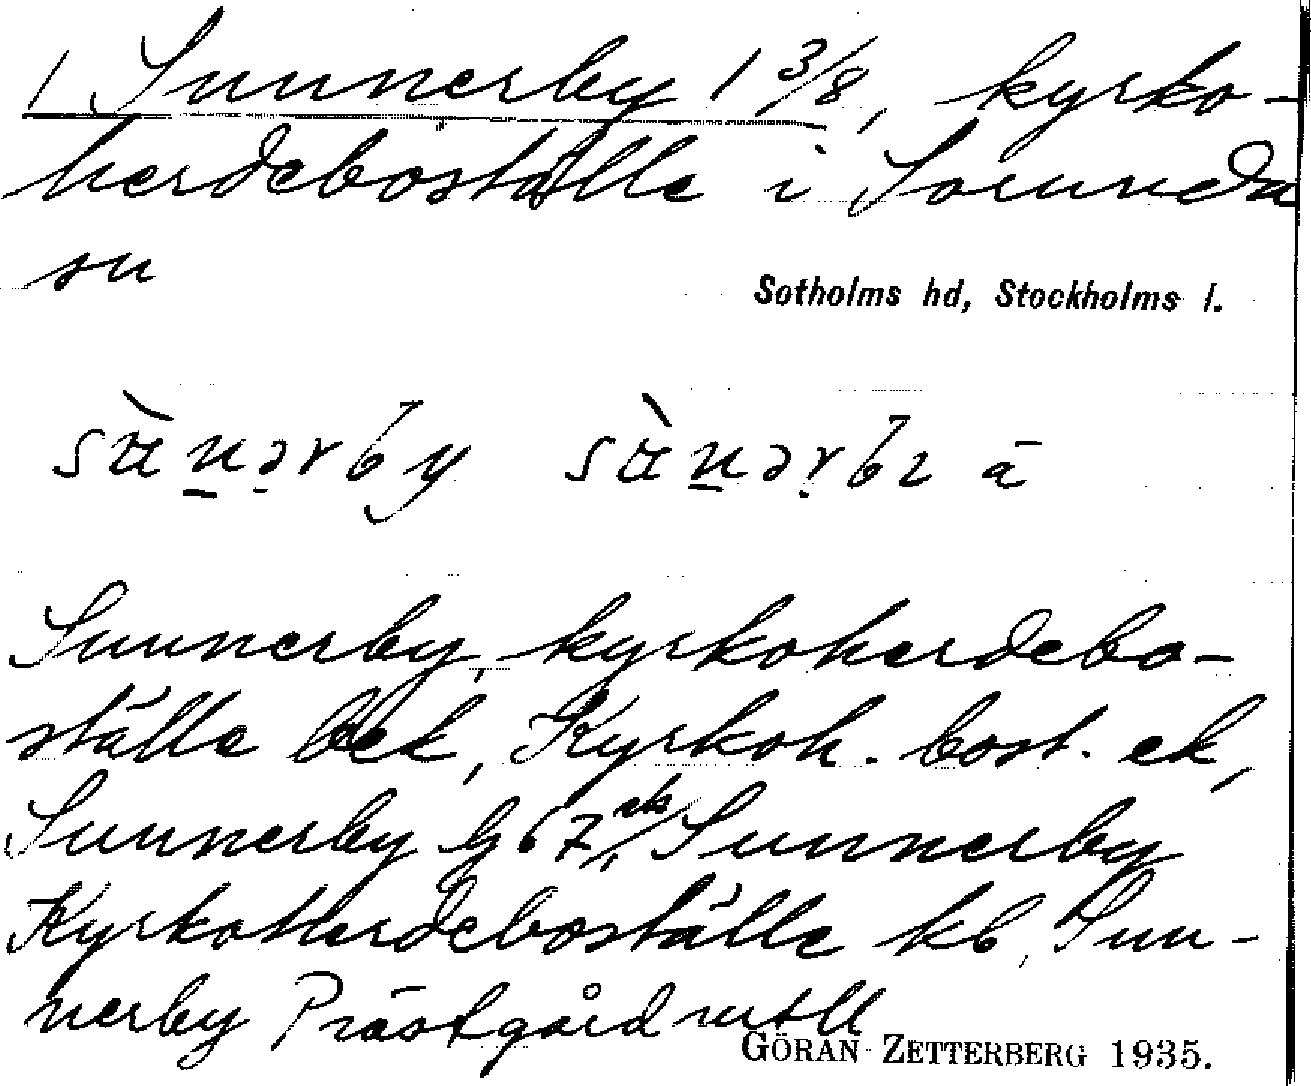 1 Sunnerby 1 3/8, kyrko-
herdeboställe i Sorunda
sn
Sotholms hd, Stockholms l.
Sunnerby, kyrkoherdebo-
ställe bek, Kyrkoh. bost. ek,
Sunnerby G 67, Sunnerby
Kyrkoherdeboställe kb, Sun-
nerby Prästgård mtll
GÖRAN ZETTERBERG 1935.